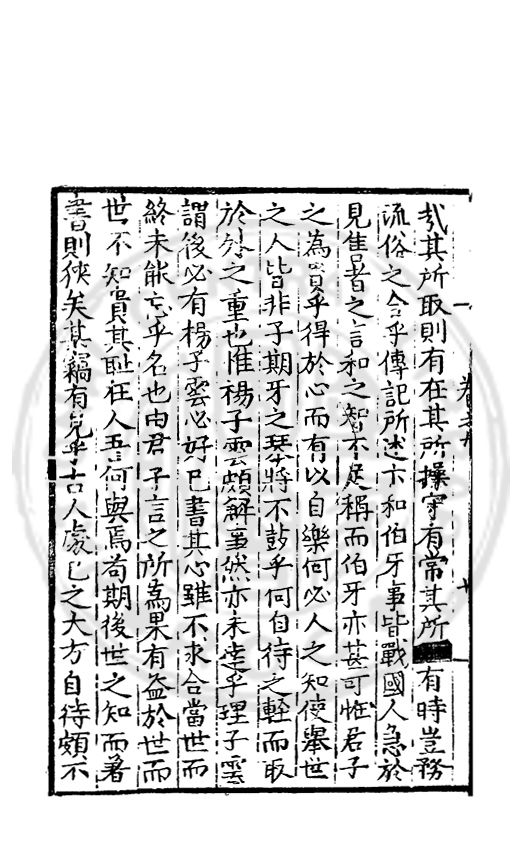 哉其所取則有在其所操守有常其所有時豈務
流俗之合乎傳記所述卞和伯牙事皆戰國人急於
見售者之言和之智不足稱而伯牙亦甚可恠君子
之為貴乎得於心而有以自樂何必人之知使舉世
之人皆非子期牙之琴將不鼓乎何自待之輕而取
於外之重也惟楊子雲頗解亊然亦未達乎理子雲
謂後必有楊子雲必好已書其心雖不求合當世而
終未能忘乎名也由君子言之所為果有益於世而
世不知貴其恥在人吾何與焉茍期後世之知而著
書則狹矣某竊有見乎古人處已之大方自待頗不
卷之九
十